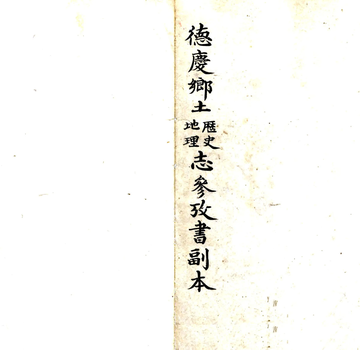 德慶鄉土歷史地理志參攷書副本